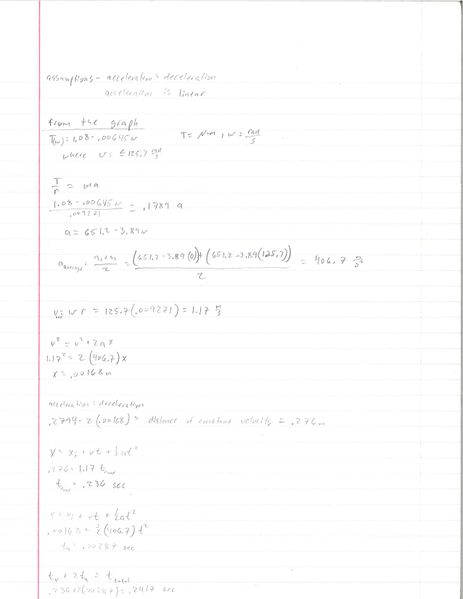 assumptions - acceleration = deceleration
acceleration is linear
from the graph
T(w) = 1.08 - .00645w    T = N·m, w = rad/s
where w = ≤ 125.7 rad/s
T/r = ma
(1.08 - .00645w)/.009271 = .1789 a
a = 651.2 - 3.89w
a average = (a1+a2)/2 = ((651.2 - 3.89(0)) + (651.2 - 3.89(125.7)))/2 = 406.7 m/s²
v = wr = 125.7(.009271) = 1.17 m/s
v² = v² + 2ax
1.17² = 2(406.7)x
x = .00168m
acceleration = deceleration
.2794 - 2(.00168) = distance of constant velocity = .276m
x = xi + vt + ½at²
.276 = 1.17 t
t = .236 sec
x = xi + vt + ½at²
.00168 = ½(406.7)t²
ta = .00287 sec
tv + 2ta = ttotal
.236 + 2(.00287) = .2417 sec